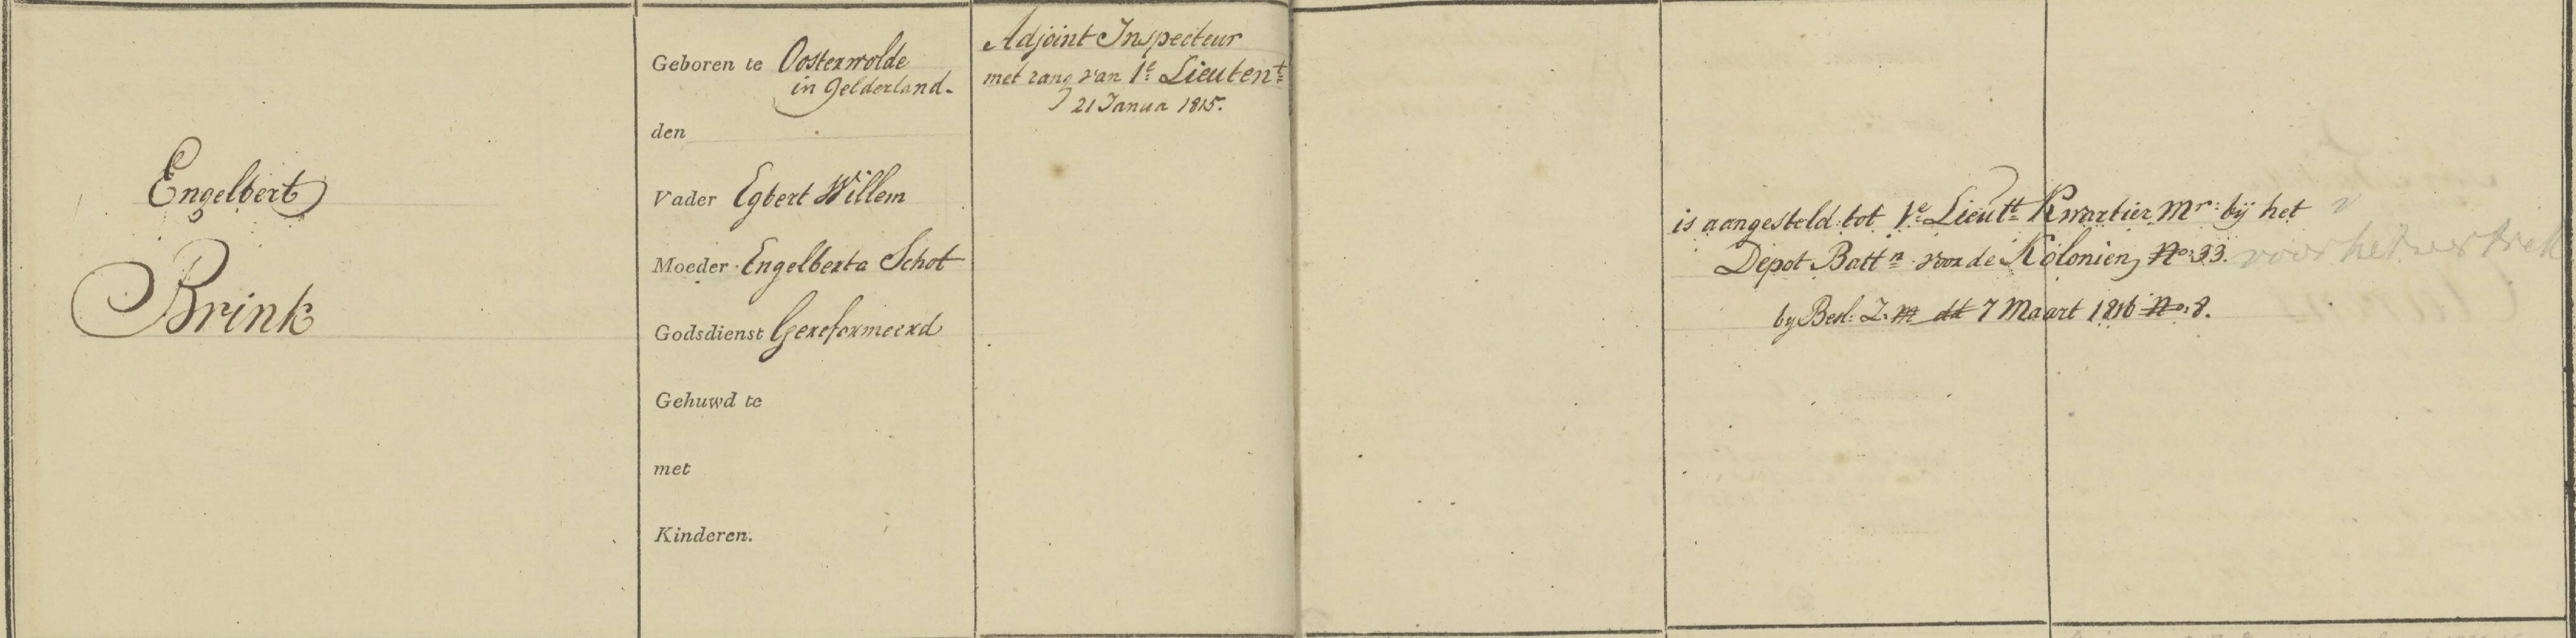 Engelbert
Brink
Geboren te Oosterwolde
in Gelderland.
den
Vader Egbert Willem
Moeder Engelberta Schot
Godsdienst Gereformeerd
Gehuwd te
met
Kinderen.
Adjoint Inspecteur
met rang van 1e Lieutent
21 Janua 1815.
is aangesteld tot 1e Lieutt Kwartier Mr: bij het
Depot Battn voor de Kolonien, No: 33.
by Besl: Z. M dd 7 Maart 1816 No. 8.
voor het vertrek